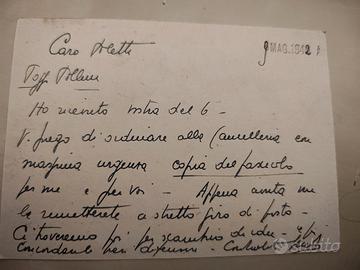 Caro Poletti
9 MAG. 1942
Ho ricevuto vostra del 6 -
V. prego di ordinare alla Cancelleria con
massima urgenza copia del fascicolo
per me e per voi - Appena avuta me
la rimetterete a stretto giro di posta -
Ci troveremo poi per scambio di idee -
subito